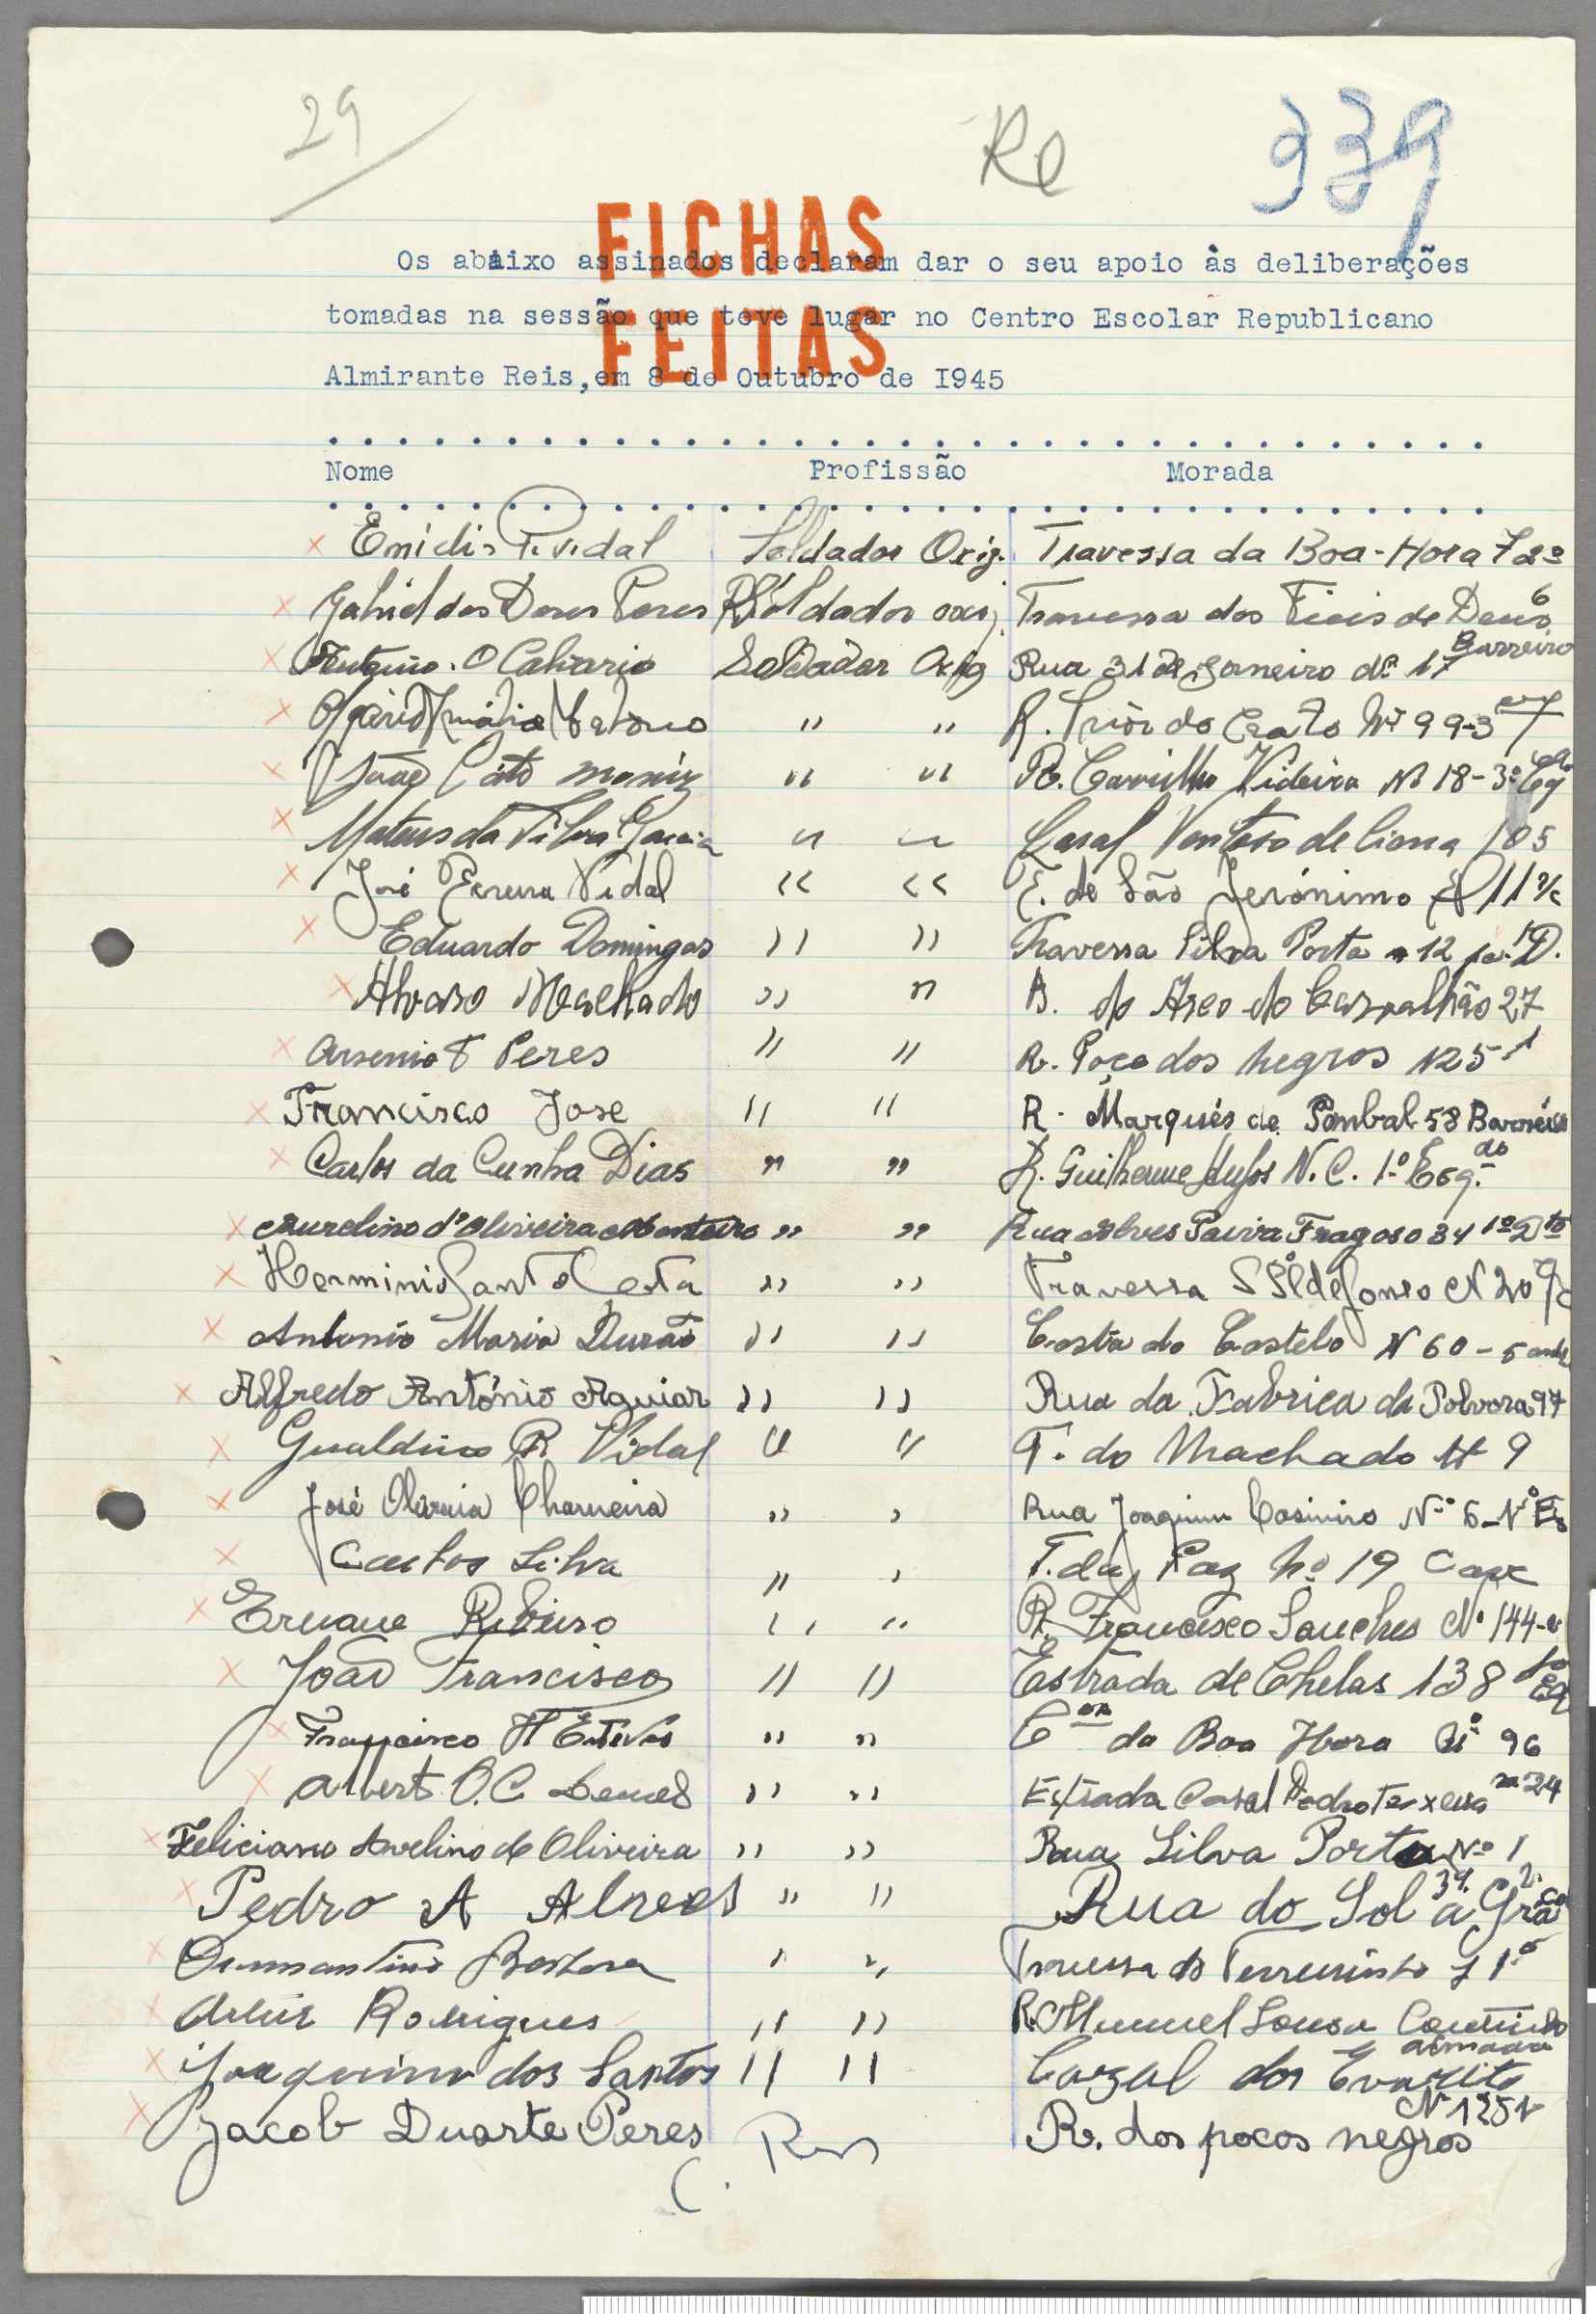 29
Re
339
FICHAS
FEITAS
Os abaixo assinados declaram dar o seu apoio às deliberações
tomadas na sessão que teve lugar no Centro Escolar Republicano
Almirante Reis,em 8 de Outubro de I945
Nome Profissão Morada
Emidio P. Vidal Soldador Oxig. Travessa da Boa-Hora 72º
Gabriel das Dores Peres Soldador oxig. Travessa dos Fieis de Deus 6
O Calvario Soldador Oxig Rua 31 de Janeiro dº 17 Barreiro
" " R. Prior do Crato Nº 99-3
João Moniz " " R. Carrilho Videira Nº 18-3º Esq
Mateus da Silva Garcia " " Casal Ventoso de Cima 105
José Pereira Vidal " " T. de São Jerónimo Nº 11 r/c
Eduardo Domingos " " Travessa Silva Porto n 12 D.
Alvaro Machado " " do Arco do Carvalhão 27
Arsenio T Peres " " R. Poço dos Negros 125-1
Francisco Jose " " R. Marquês de Pombal 58 Barreiro
Carlos da Cunha Dias " " R. Guilherme N.C. 1º Esq.do
Aurelino d'Oliveira Monteiro " " Rua Alves Paiva Fragoso 34 1º Dto
Herminio Santos Costa " " Travessa S Ildefonso N 20 r/c
Antonio Maria Durão " " Costa do Castelo N 60-5 and
Alfredo António Aguiar " " Rua da Fabrica da Polvora 97
Gualdino R Vidal " " T. do Machado Nº 9
José Oliveira Charneira " " Rua Joaquim Casimiro Nº 6
Carlos Silva " " T. da Paz Nº 19 Cave
Ernane Ribeiro " " R. Francisco Sanches Nº 144
João Francisco " " Estrada de Chelas 138 Eq
Francisco H Esteves " " da Boa Hora Nº 96
Albert O.C. " " Estrada Casal Pedro Teixeira nº 24
Feliciano Avelino de Oliveira " " Rua Silva Porto Nº 1
Pedro A Alves " " Rua do Sol á Graça 39 2.
Diamantino Barbosa " " Travessa do Terreirinho 7 1º
Artur Rodrigues " " R. Manuel Sousa Coutinho
Joaquim dos Santos " " Cazal dos Evaristo Almada
Jacob Duarte Peres R. dos pocos negros Nº 125 1